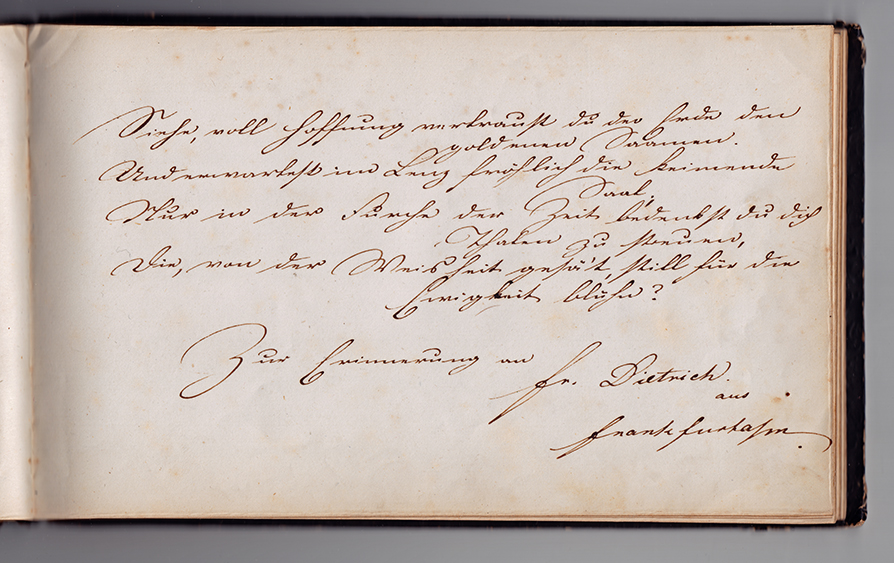 Siehe, voll Hoffnung vertraust du der Erde den
goldenen Saamen.
Und erwartest im Lenz fröhlich die keimende
Saat,
Nur in der Furche der Zeit bedenkst du dich
Thaten zu streuen,
Die, von der Weisheit gesä't, still für die
Ewigkeit blühn?
Zur Erinnerung an
Fr. Dietrich.
aus
Frankfurta/m.